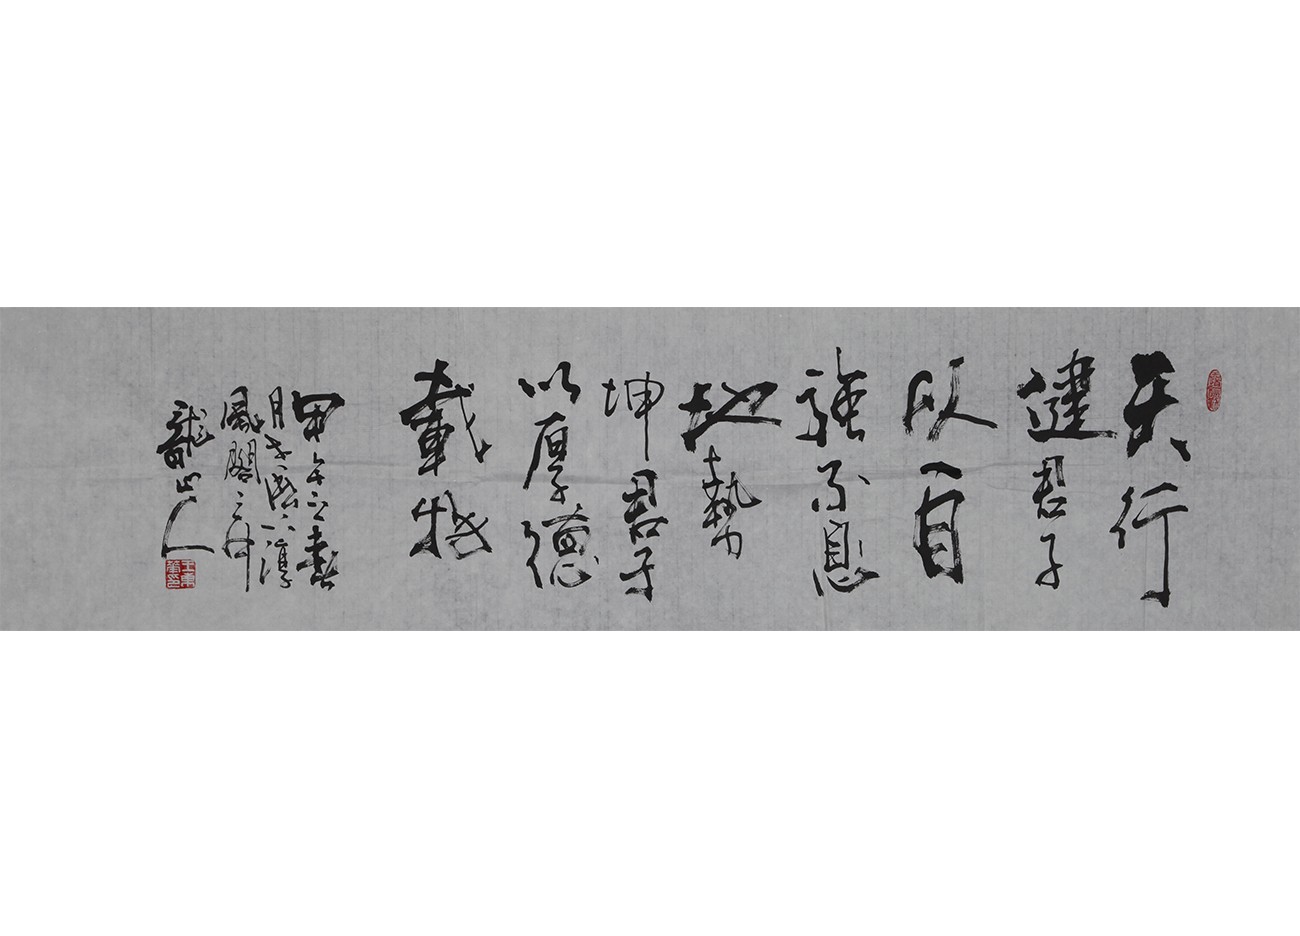 天行
健君子
以自
強不息
地勢
坤君子
以厚德
載物
甲午之春
月於濟六淳
風閣之舟
龍山人